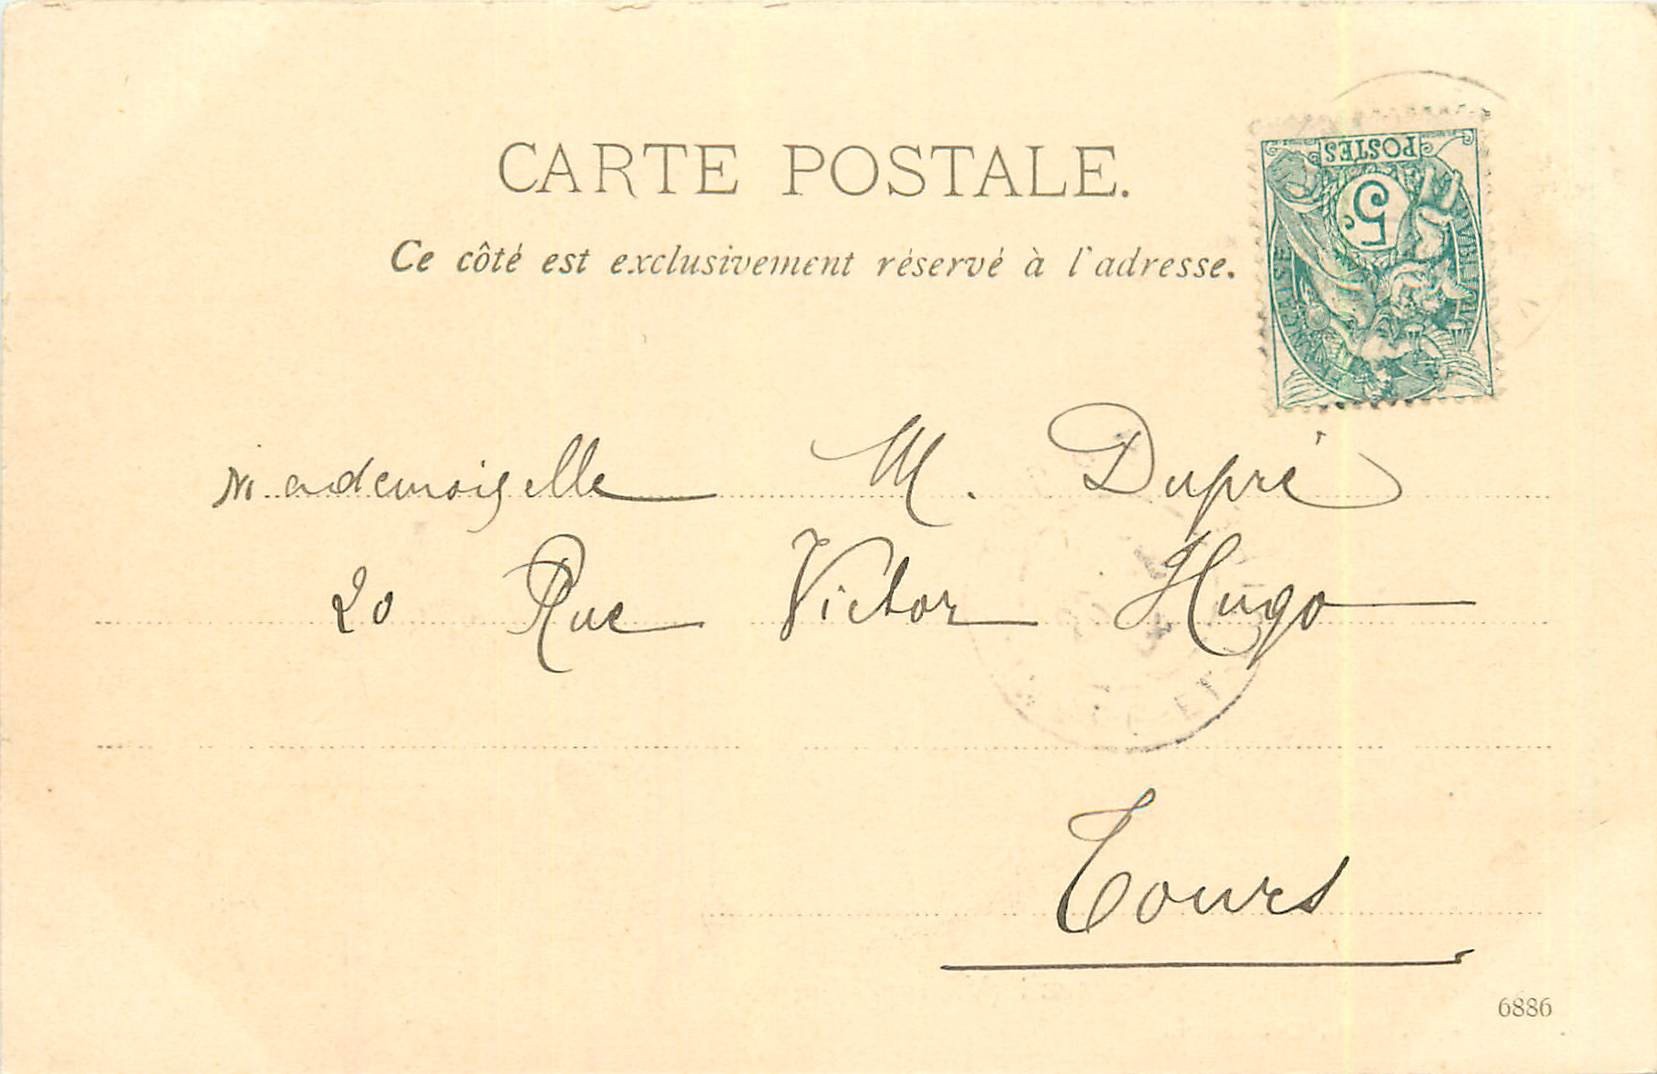 CARTE POSTALE.
Ce côté est exclusivement réservé à l'adresse.
POSTES
5c
Mademoiselle M. Dupré
20 Rue Victor Hugo
Tours
6886